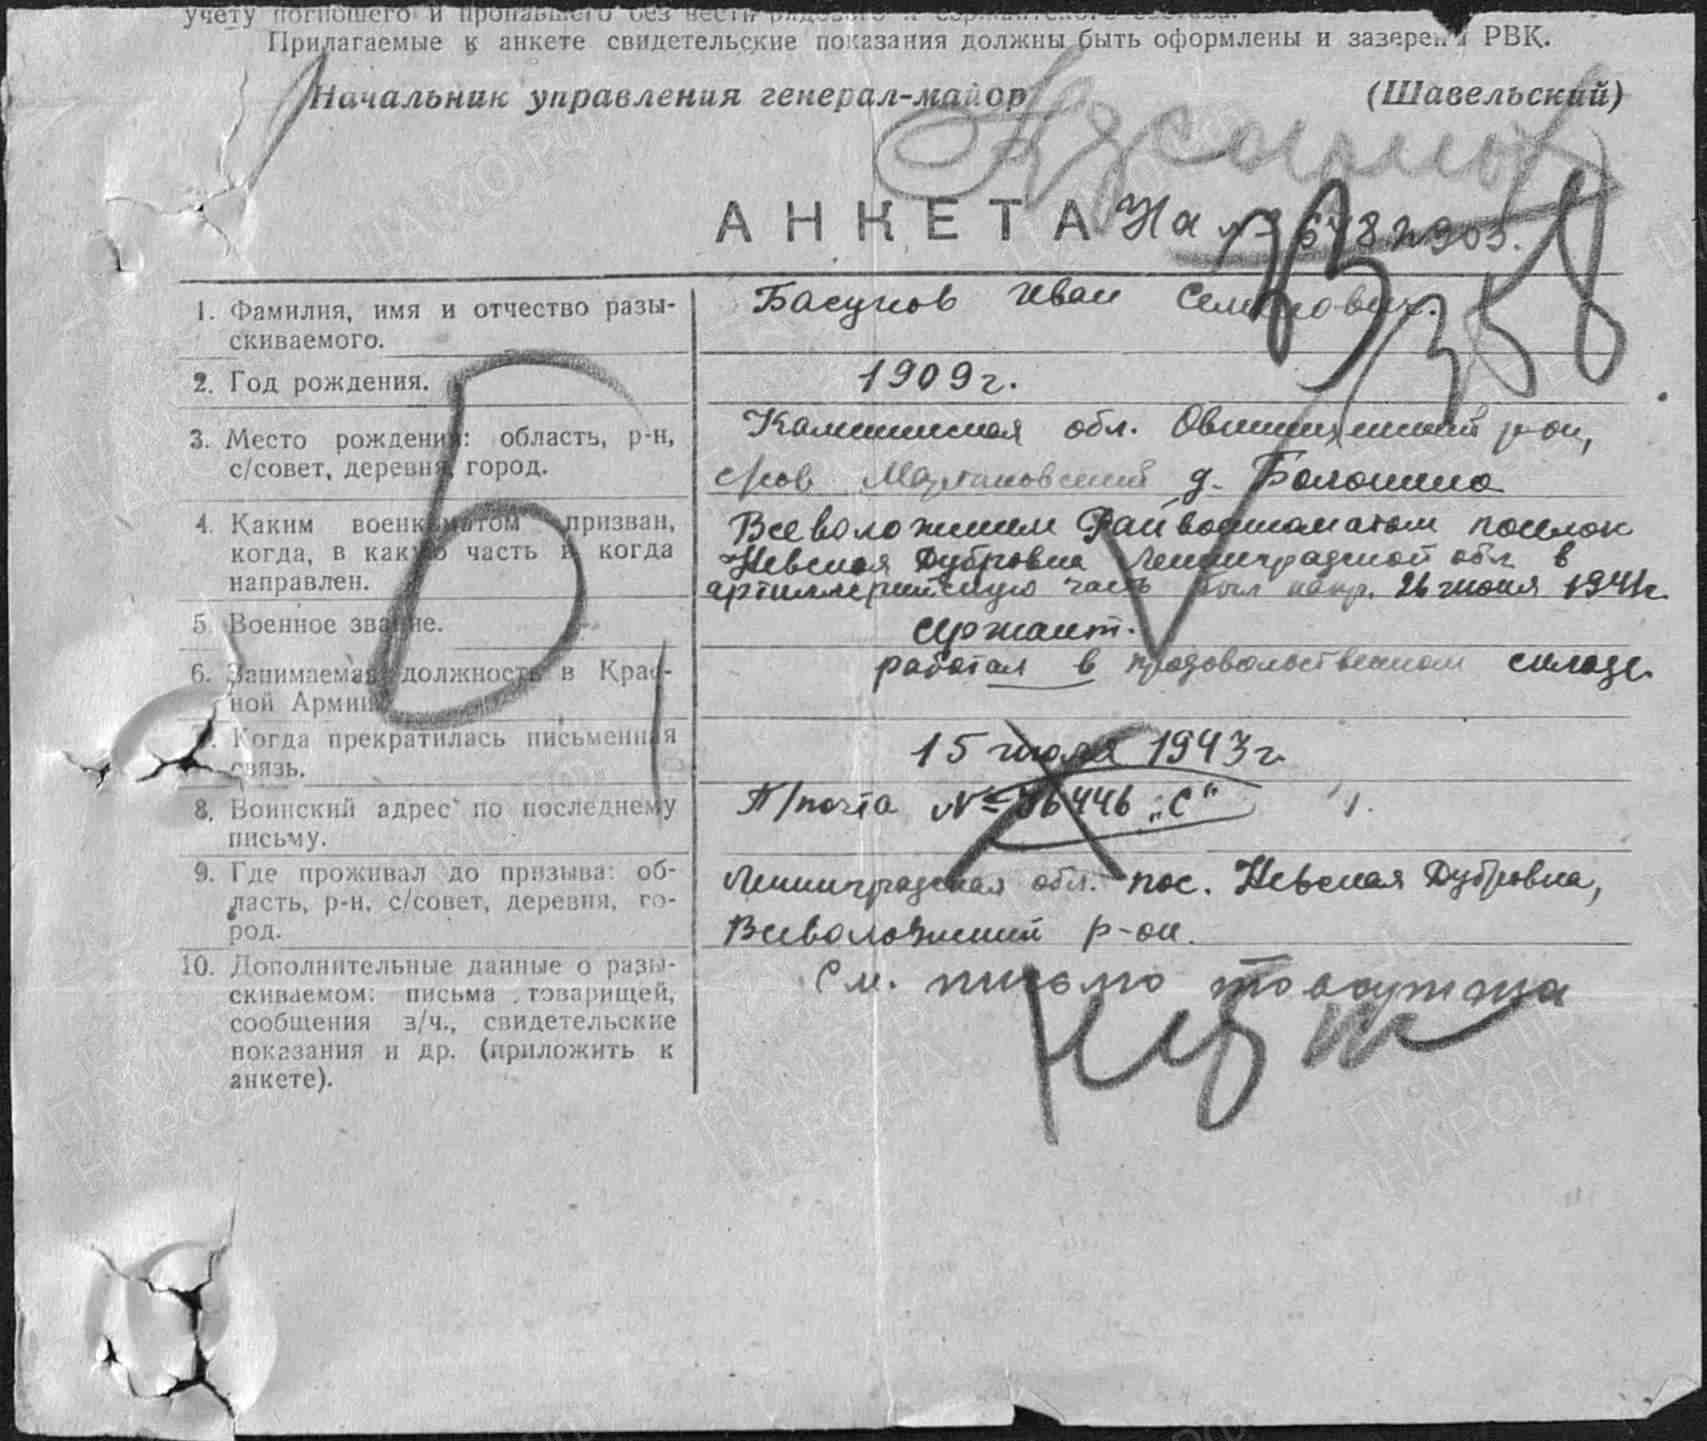 учету погибшего и пропавшего без вести рядового и сержантского состава.
Прилагаемые к анкете свидетельские показания должны быть оформлены и заверены РВК.
Начальник управления генерал-майор (Шавельский)
АНКЕТА На №
1. Фамилия, имя и отчество разы-
скиваемого.
Басунов Иван Семенович.
2. Год рождения.
1909 г.
3. Место рождения: область, р-н,
с/совет, деревня, город.
Калининская обл. р-он,
с/сов д. Болошино
4. Каким военкоматом призван,
когда, в какую часть и когда
направлен.
Всеволожским Райвоенкоматом поселок
Невская Дубровка Ленинградской обл. в
артиллерийскую часть был напр. 26 июня 1941 г.
5. Военное звание.
сержант.
6. Занимаемая должность в Крас-
ной Армии
работал в продовольственном складе.
7. Когда прекратилась письменная
связь.
15 июля 1943 г.
8. Воинский адрес по последнему
письму.
П/почта № 36446 „С"
9. Где проживал до призыва: об-
ласть, р-н, с/совет, деревня, го-
род.
Ленинградская обл. пос. Невская Дубровка,
Всеволожский р-он.
10. Дополнительные данные о разы-
скиваемом: письма товарищей,
сообщения з/ч., свидетельские
показания и др. (приложить к
анкете).
См. письмо товарища
Б